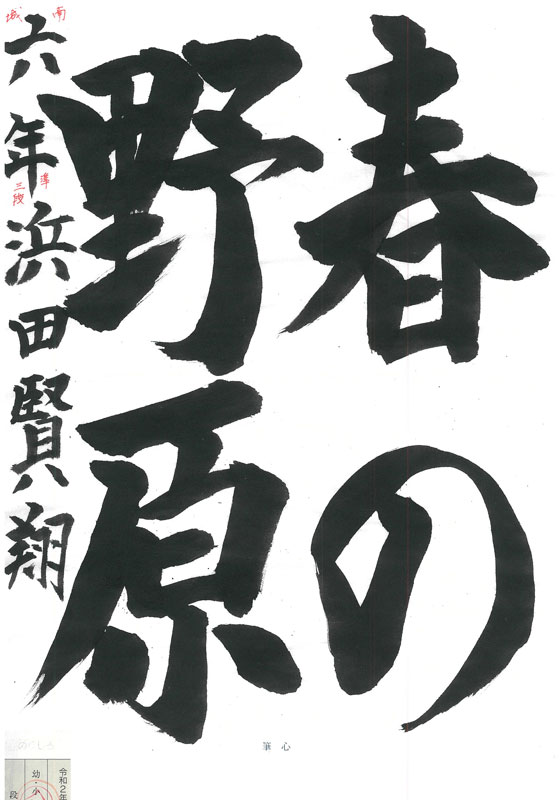 春の
野原
六年浜田賢翔
南
城
準
三段
心筆
令和2年
幼・小
段